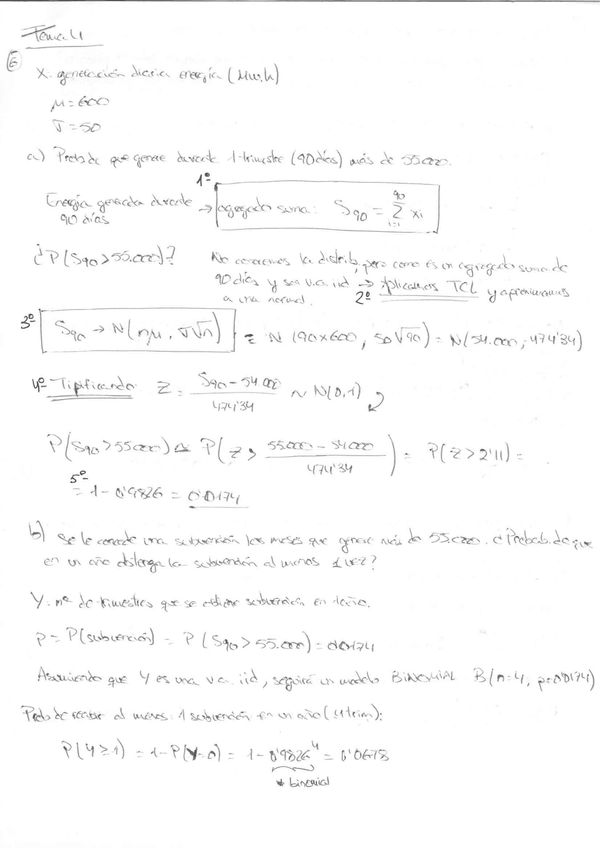 Tema 4
6
X. generación diaria energía (Mw.h)
μ = 600
σ = 50
a) Prob de que genere durante 1 trimestre (90 días) más de 55000.
1º
Energía generada durante 90 días → agregado suma: S90 = 90 Σ i=1 xi
¿P(S90 > 55.000)?
No conocemos la distrib, pero como es un agregado suma de
90 días y ser v.a iid → Aplicamos TCL y aproximamos
a una normal. 2º
3º S90 → N(nμ, σ√n) = N(90×600, 50√90) = N(54.000, 474'34)
4º Tipificando Z = (S90 - 54000) / 474'34 ~ N(0,1)
P(S90 > 55000) = P(Z > (55.000 - 54000) / 474'34) = P(Z > 2'11) =
5º
= 1 - 0'9826 = 0'0174
b) Se le concede una subvención los meses que genere más de 55000. ¿Probab. de que
en un año obtenga la subvención al menos 1 vez?
Y. nº de trimestres que se obtiene subvención en 1 año.
p = P(subvención) = P(S90 > 55.000) = 0'0174
Asumiendo que Y es una v.a. iid, seguirá un modelo BINOMIAL B(n=4, p=0'0174)
Prob de recibir al menos 1 subvención en un año (4 trim):
P(Y ≥ 1) = 1 - P(Y=0) = 1 - 0'9826⁴ = 0'0678
* binomial